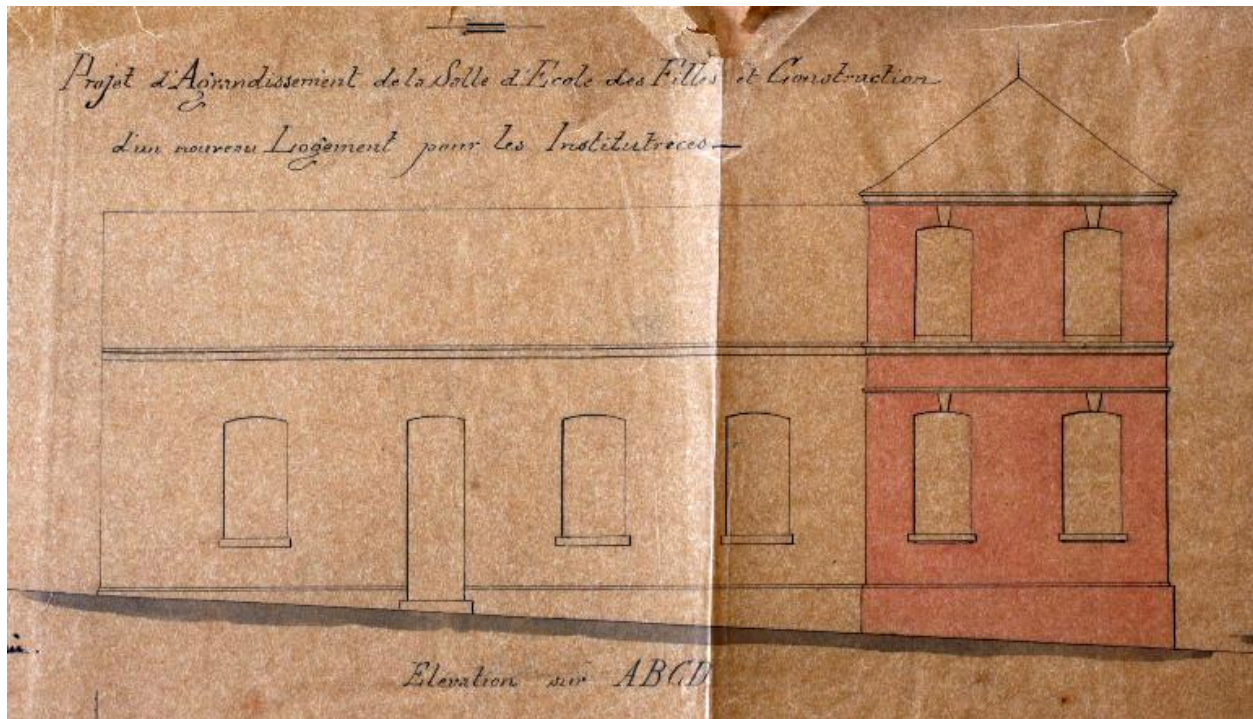 Projet d'Agrandissement de la Salle d'Ecole des Filles et Construction
d'un nouveau Logement pour les Institutrices
Elevation sur ABCD